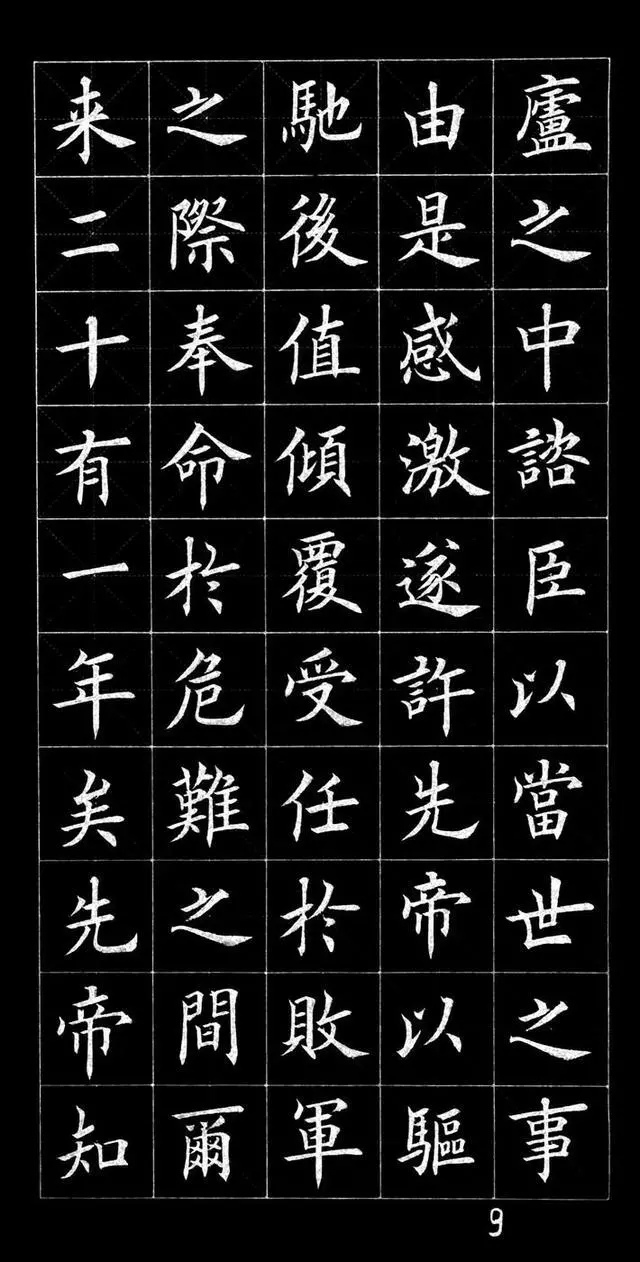 廬之中諮臣以當世之事
由是感激遂許先帝以驅
馳後值傾覆受任於敗軍
之際奉命於危難之間爾
来二十有一年矣先帝知
9